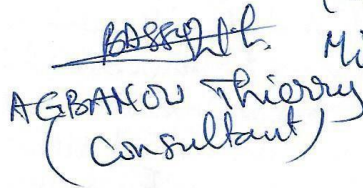 Mi
AGBANOU Thierry
(Consultant)